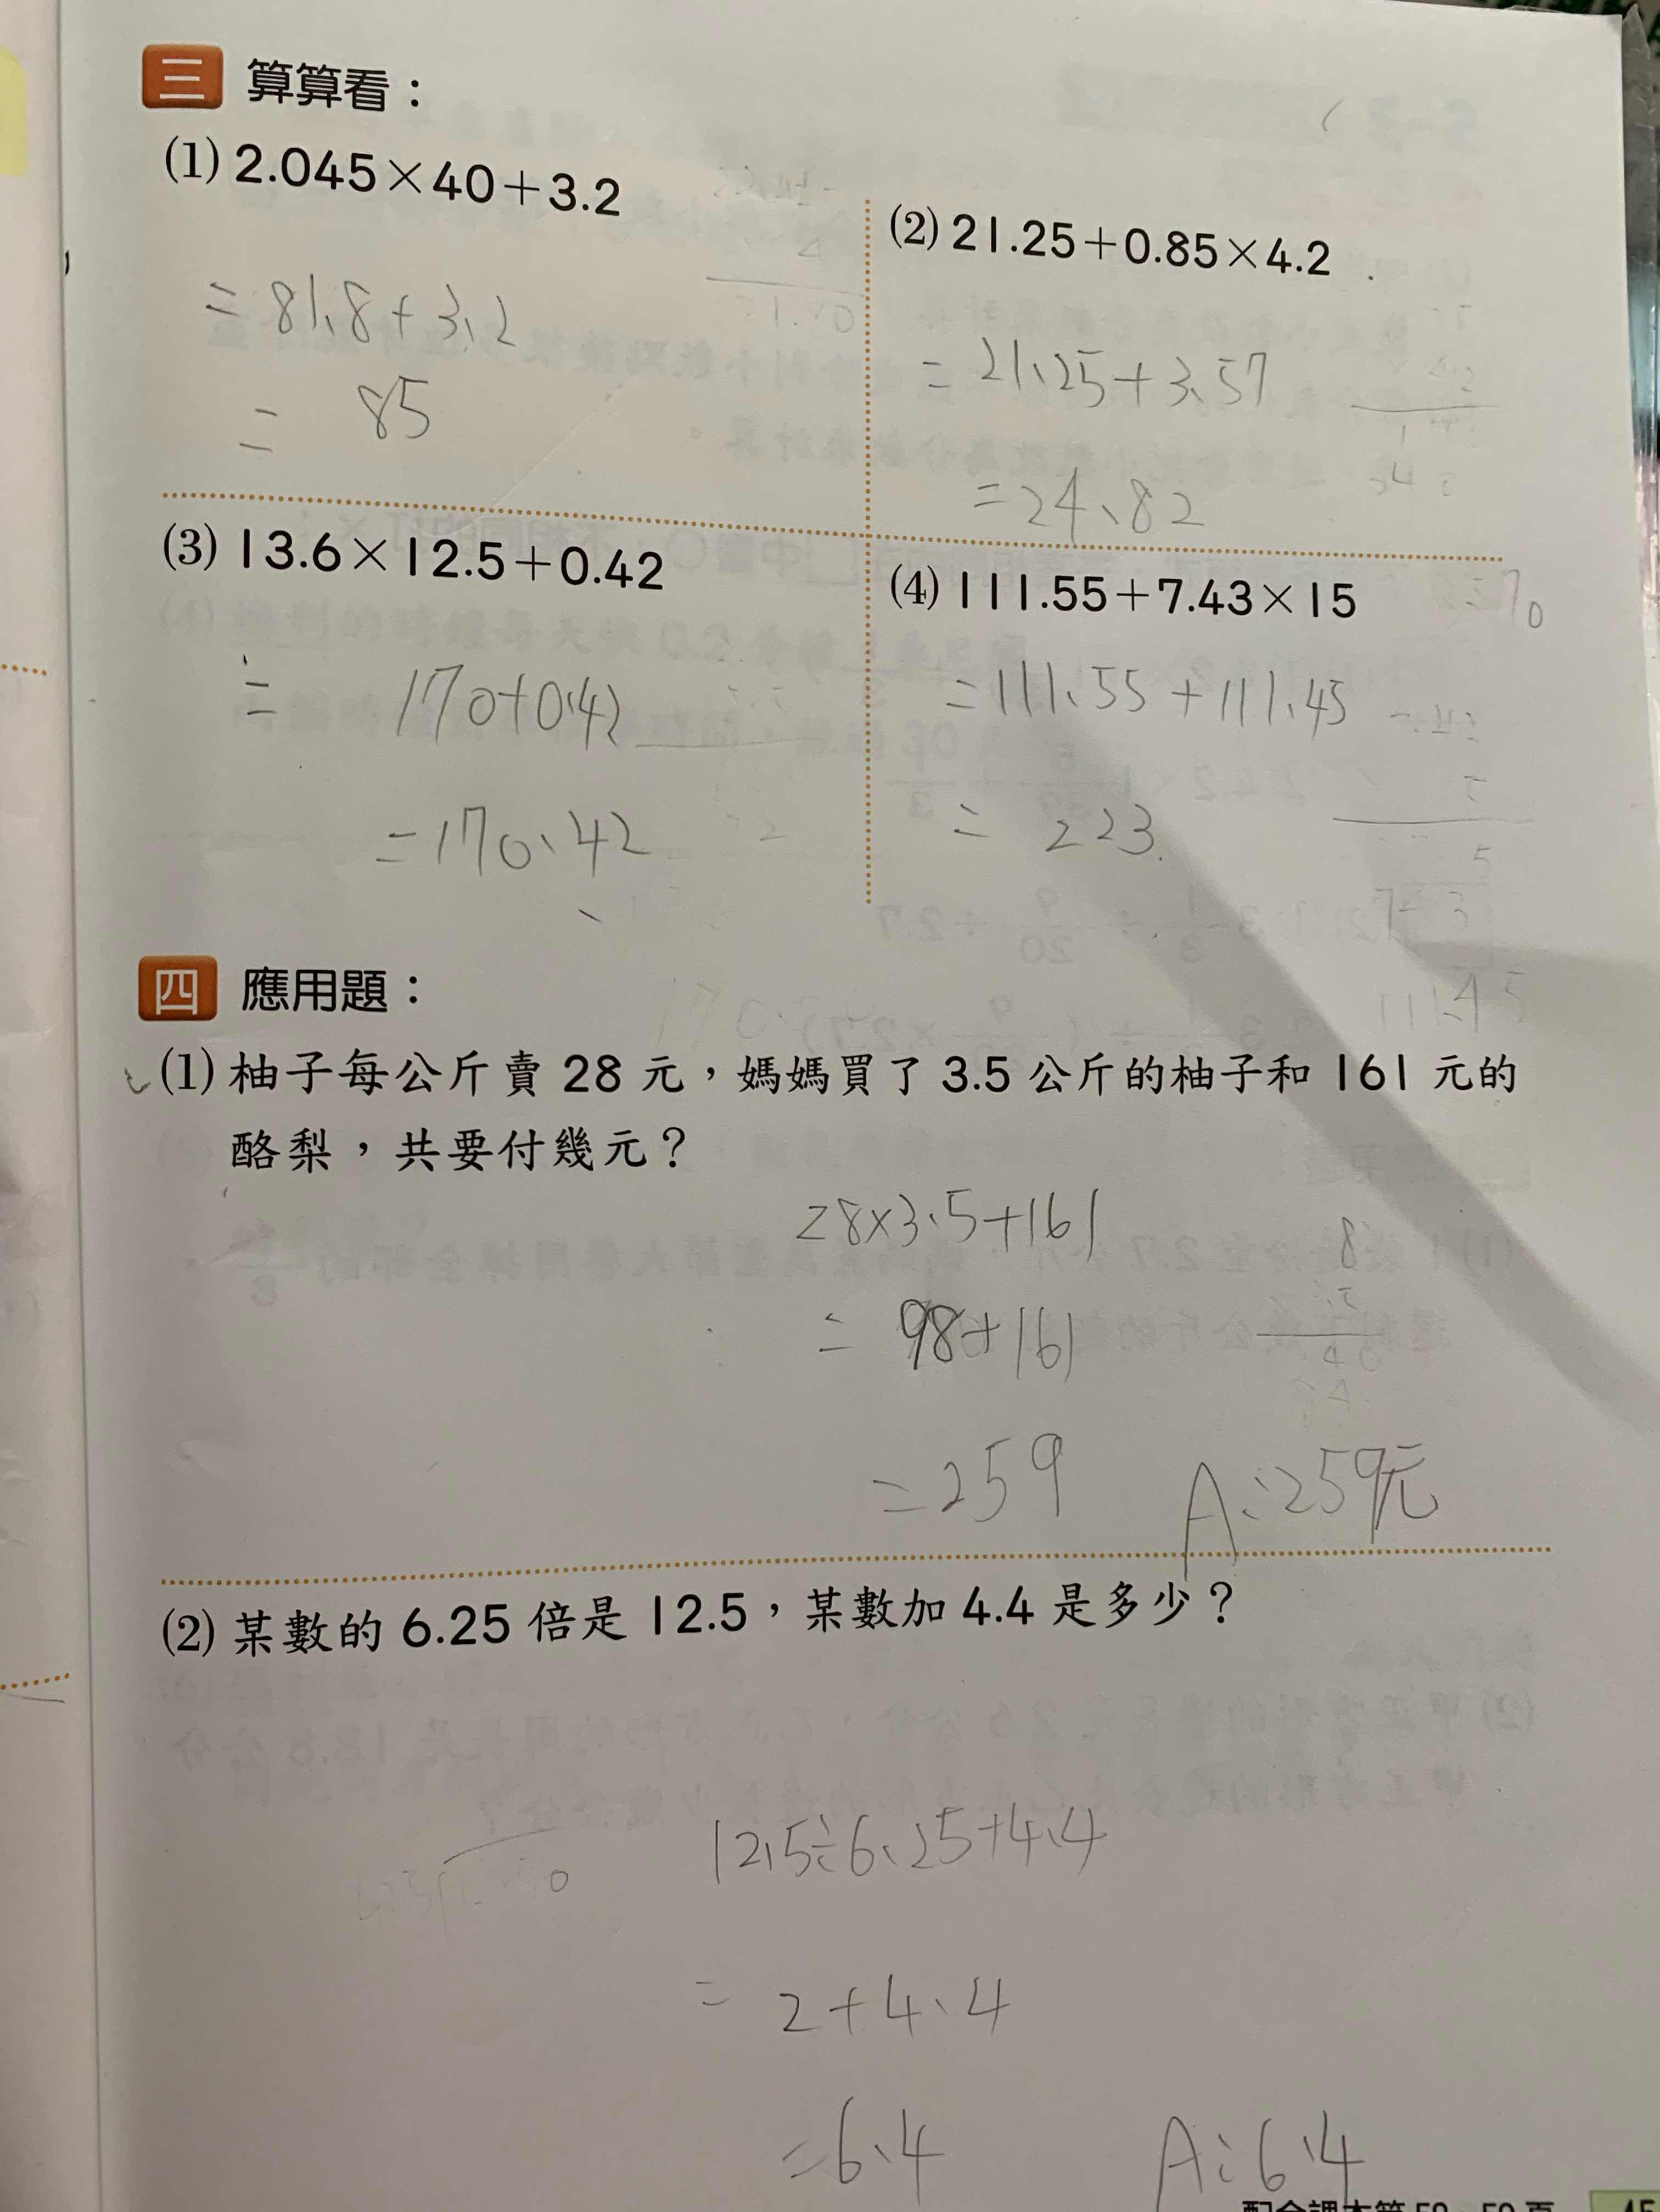 三 算算看：
(1) 2.045×40+3.2
=81.8+3.2
= 85
(2) 21.25+0.85×4.2
=21.25+3.57
=24.82
(3) 13.6×12.5+0.42
= 170+0.42
=170.42
(4) 111.55+7.43×15
=111.55+111.45
= 223
四 應用題：
(1) 柚子每公斤賣 28 元，媽媽買了 3.5 公斤的柚子和 161 元的
酪梨，共要付幾元？
28×3.5+161
= 98+161
=259 A:259元
(2) 某數的 6.25 倍是 12.5，某數加 4.4 是多少？
12.5÷6.25+4.4
= 2+4.4
=6.4 A:6.4